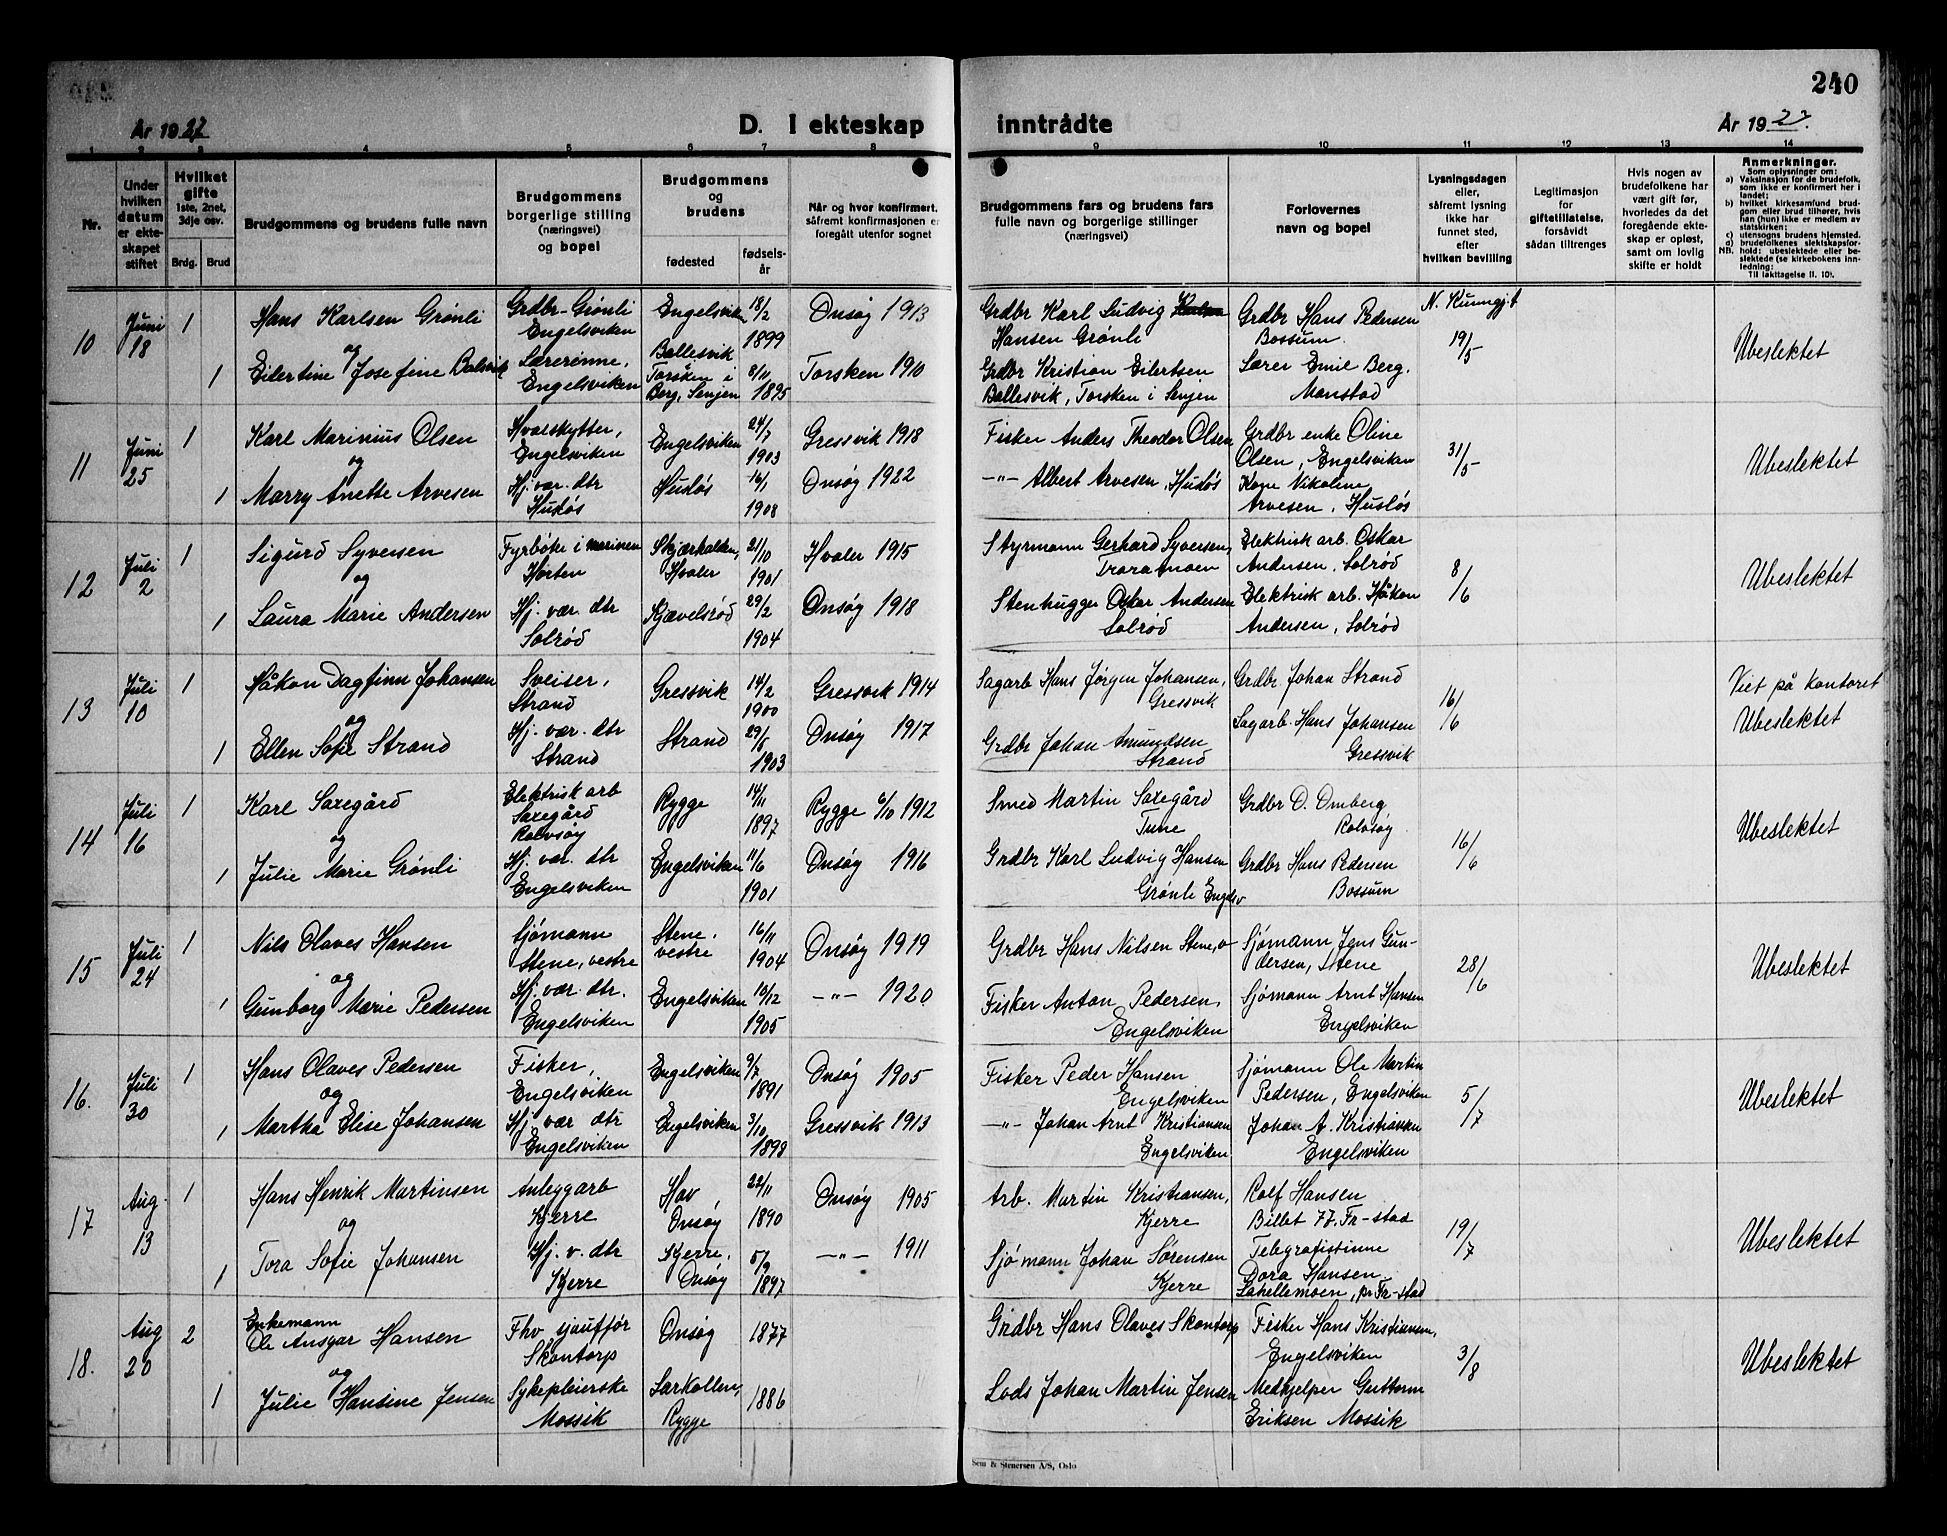 240
År 1927
D. I ekteskap inntrådte
År 1927.
1 2 3 4 5 6 7 8 9 10 11 12 13 14
Nr.
Under hvilken datum er ekteskapet stiftet
Hvilket gifte 1ste, 2net, 3dje osv.
Brdg. Brud
Brudgommens og brudens fulle navn
Brudgommens borgerlige stilling (næringsvei) og bopel
Brudgommens og brudens
fødested
fødselsår
Når og hvor konfirmert, såfremt konfirmasjonen er foregålt utenfor sognet
Brudgommens fars og brudens fars fulle navn og borgerlige stillinger (næringsvei)
Forlovernes navn og bopel
Lysningsdagen eller, såfremt lysning ikke har funnet sted, efter hvilken bevilling
Legitimasjon for giftetillatelse, forsåvidt sådan tiltrenges
Hvis nogen av brudefolkene har vært gift før, hvorledes da det foregående ekteskap er opløst, samt om lovlig skifte er holdt
Anmerkninger.
Som oplysninger om:
a) Vaksinasjon for de brudefolk, som ikke er konfirmert her i landet;
b) hvilket kirkesamfund brudgom eller brud tilhører, hvis han (hun) ikke er medlem av statskirken;
c) utensogns brudens hjemsted.
d) brudefolkenes slektskapsforhold: ubeslektede eller beslektede (se kirkebokens innledning:
NB. Til iakttagelse II. 10).
10 Juni 18 1 Hans Karlsen Grønli Grdbr Grønli Engelsviken Engelsviken 18/2 1899 Onsøy 1913 Grdbr Karl Ludvig Hansen Grønli Grdbr Hans Pedersen Bossum. N. Kunngj.t 19/5 Ubeslektet
og
1 Eilertine Josefine Balsvik Lærerinne, Engelsviken Ballesvik Torsken i Berg, Senjen 8/11 1895 Torsken 1910 Grdbr Kristian Eilertsen Ballesvik, Torsken i Senjen Lærer Emil Berg. Manstad
11 Juni 25 1 Karl Marinius Olsen Hvalskytter, Engelsviken Engelsviken 24/7 1903 Gressvik 1918 Fisker Anders Theodor Olsen Grdbr enke Oline Olsen, Engelsviken 31/5 Ubeslektet
og
1 Marry Anette Arvesen Hj. vær. dtr Husløs Husløs 16/1 1908 Onsøy 1922 -"- Albert Arvesen, Husløs Kone Nikoline Arvesen, Husløs
12 Juli 2 1 Sigurd Syversen Fyrbøte i marinen Horten Skjærhalden, Hvaler 21/10 1901 Hvaler 1915 Styrmann Gerhard Syversen, Traramoen Elektrisk arb. Oskar Andersen, Solrød 8/6 Ubeslektet
og
1 Laura Marie Andersen Hj. vær. dtr Solrød Kjævelsrød 29/2 1904 Onsøy 1918 Stenhugger Oskar Andersen Solrød Elektrisk arb. Håkon Andersen, Solrød
13 Juli 10 1 Håkon Dagfinn Johansen Sveiser, Strand Gressvik 14/2 1900 Gressvik 1914 Sagarb Hans Jørgen Johansen, Gressvik Grdbr Johan Strand 16/6 Viet på kontoret
og
1 Ellen Sofie Strand Hj. vær. dtr Strand Strand 1903 Onsøy 1917 Grdbr Johan Amundsen Strand Sagarb. Hans Johansen Gressvik Ubeslektet
14 Juli 16 1 Karl Saxegård Elektrisk arb Saxegård Rolvsøy Rygge 14/11 1897 Rygge 6/10 1912 Smed Martin Saxegård Tune Grdbr O. Omberg Rolvsøy 16/6 Ubeslektet
og
1 Julie Marie Grønli Hj. vær. dtr Engelsviken Engelsviken 11/6 1901 Onsøy 1916 Grdbr Karl Ludvig Hansen Grønli Engelsv Grdbr Hans Pedersen Bossum
15 Juli 24 1 Nils Olaves Hansen Sjømann Stene, vestre Stene, vestre 16/11 1904 Onsøy 1919 Grdbr Hans Nilsen Stene, v Sjømann Jens Gundersen, Stene 28/6 Ubeslektet
og
1 Gunborg Marie Pedersen Hj. vær. dtr. Engelsviken Engelsviken 10/12 1905 -"- 1920 Fisker Anton Pedersen, Engelsviken Sjømann Arnt Hansen Engelsviken
16. Juli 30 1 Hans Olaves Pedersen Fisker, Engelsviken Engelsviken 9/7 1891 Onsøy 1905 Fisker Peder Hansen Engelsviken Sjømann Ole Martin Pedersen, Engelsviken 5/7 Ubeslektet
og
1 Martha Elise Johansen Hj. vær dtr Engelsviken Engelsviken 3/10 1898 Gressvik 1913 -"- Johan Arnt Kristiansen Engelsviken Johan A. Kristiansen Engelsviken
17 Aug 13 1 Hans Henrik Martinsen Anleggarb Kjerre Hav, Onsøy 22/11 1890 Onsøy 1905 Arb. Martin Kristiansen, Kjerre Rolf Hansen Billet 77. Fr-stad 19/7 Ubeslektet
og
1 Tora Sofie Johansen Hj. v. dtr Kjerre Kjerre, Onsøy 5/9 1897 -"- 1911 Sjømann Johan Sørensen Kjerre Telegrafistinne Dora Hansen Lahellemoen, pr Fr-stad
18. Aug 20 2 Enkemann Ole Ansgar Hansen Fhv sjauffør Skontorp Onsøy 1877 Grdbr Hans Olaves Skontorp Fisker Hans Kristiansen, Engelsviken 3/8 Ubeslektet
og
1 Julie Hansine Jensen Sykepleierske Mossik Larkollen, Rygge 1886 Lods Johan Martin Jensen Medhjelper Guttorm Eriksen Mossik
Sem & Stenersen A/S, Oslo